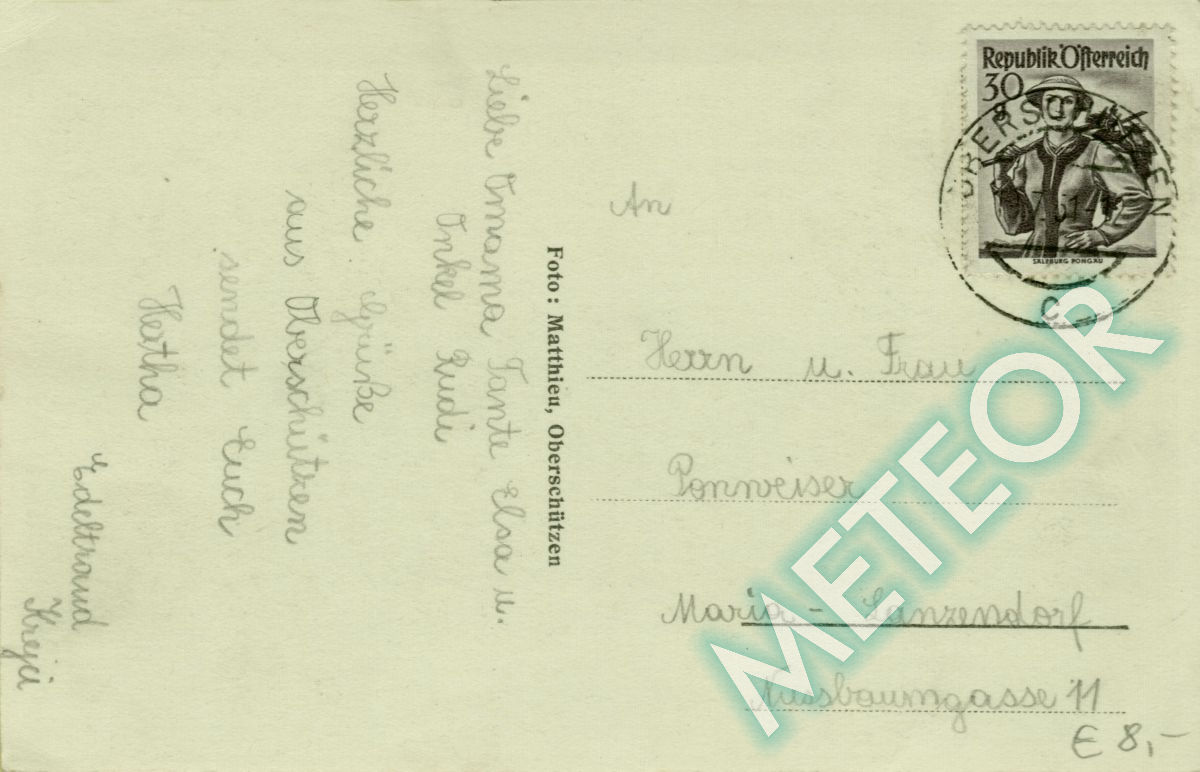 Liebe Omama Tante Elsa u.
Onkel Rudi
Herzliche Grüße
aus Oberschützen
sendet Euch
Hertha
Edeltraud
Krejci
Foto: Matthieu, Oberschützen
Republik Österreich
30 g
SALZBURG PONGAU
OBERSCHÜTZEN
C
An
Herrn u. Frau
Ponweiser
Maria-Lanzendorf
Nussbaumgasse 11
€ 8,-
METEOR